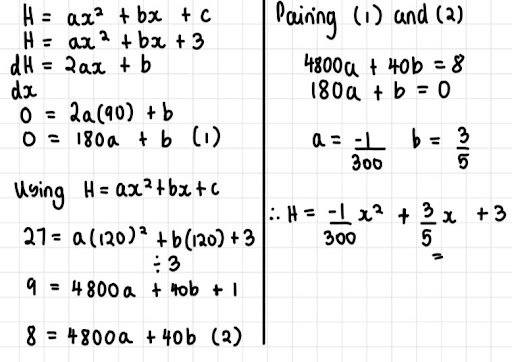 H = ax² + bx + c
H = ax² + bx + 3
dH = 2ax + b
dx
0 = 2a(90) + b
0 = 180a + b (1)
Using H = ax² + bx + c
27 = a(120)² + b(120) + 3
÷ 3
9 = 4800a + 40b + 1
8 = 4800a + 40b (2)
Pairing (1) and (2)
4800a + 40b = 8
180a + b = 0
a = -1/300 b = 3/5
∴ H = -1/300 x² + 3/5 x + 3